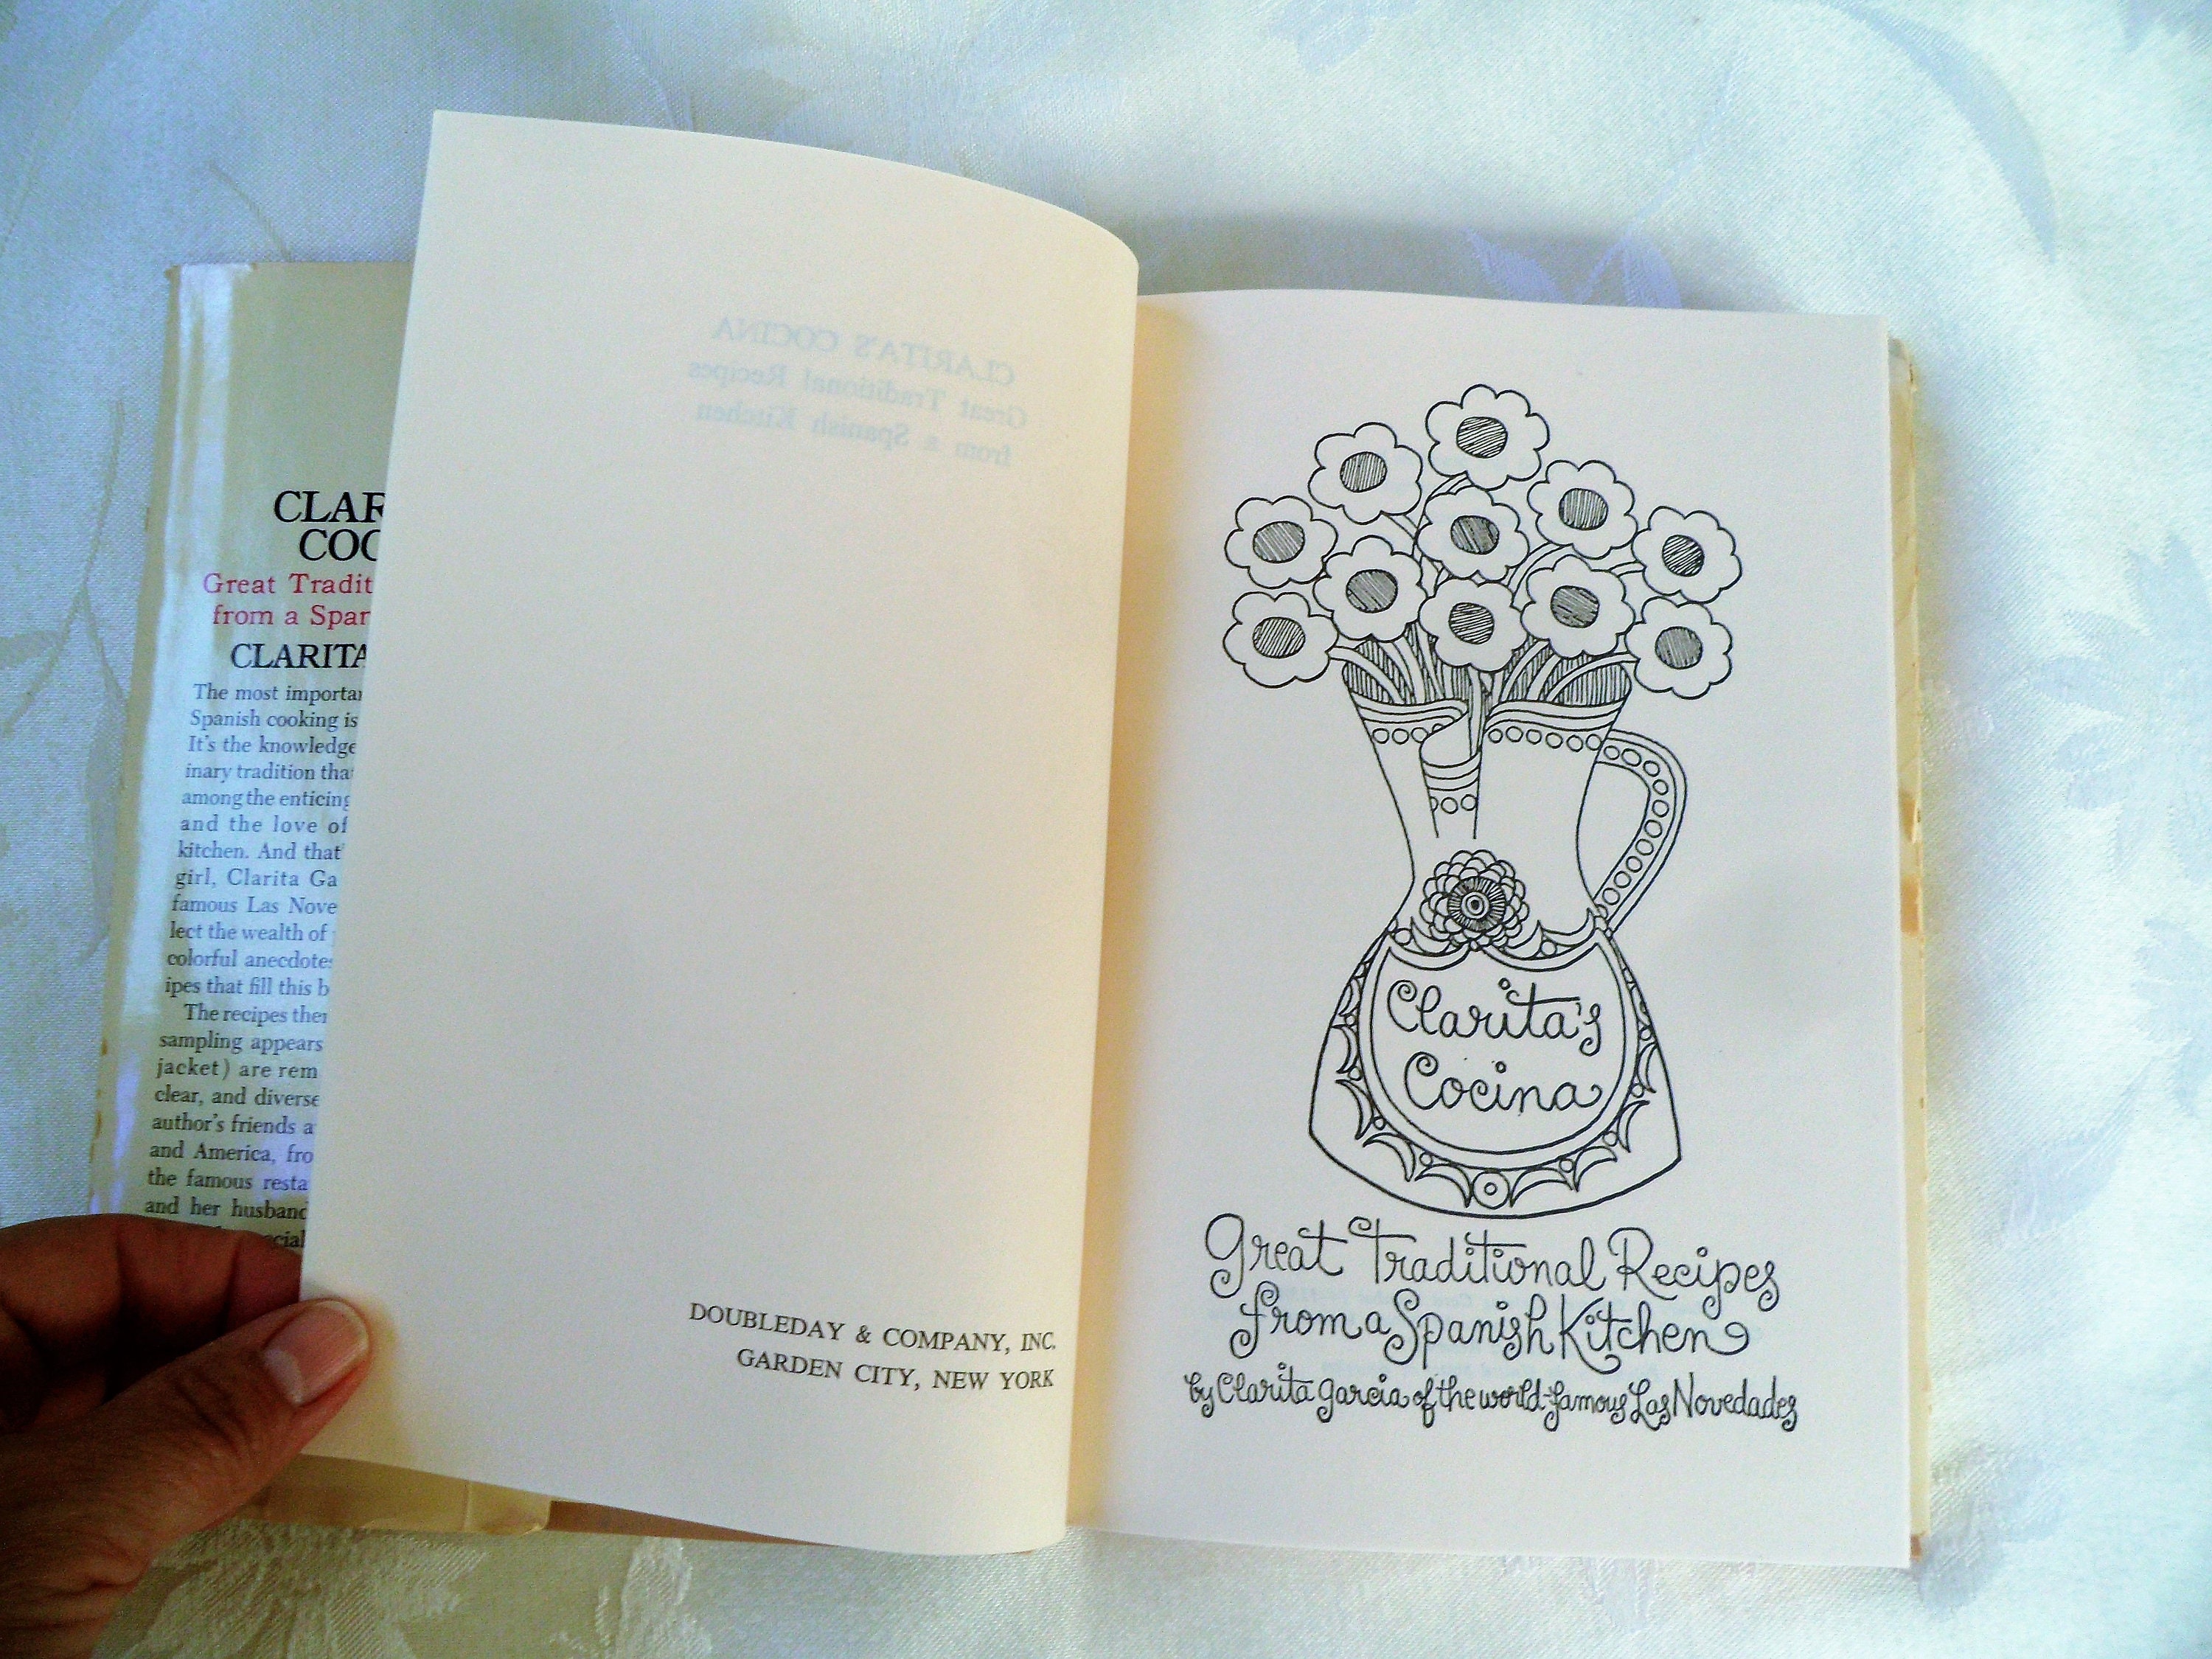 CLAR
COC
Great Tradit
from a Span
CLARITA
The most importan
Spanish cooking is
It's the knowledge
inary tradition that
among the enticing
and the love of
kitchen. And that'
girl, Clarita Ga
famous Las Nove
lect the wealth of
colorful anecdotes
ipes that fill this b
The recipes then
sampling appears
jacket) are rem
clear, and diverse
author's friends a
and America, fro
the famous resta
and her husband
cial
CLARITA'S COCINA
Great Traditional Recipes
from a Spanish Kitchen
DOUBLEDAY & COMPANY, INC.
GARDEN CITY, NEW YORK
Clarita's
Cocina
Great Traditional Recipes
from a Spanish Kitchen
by Clarita Garcia of the world-famous Las Novedades